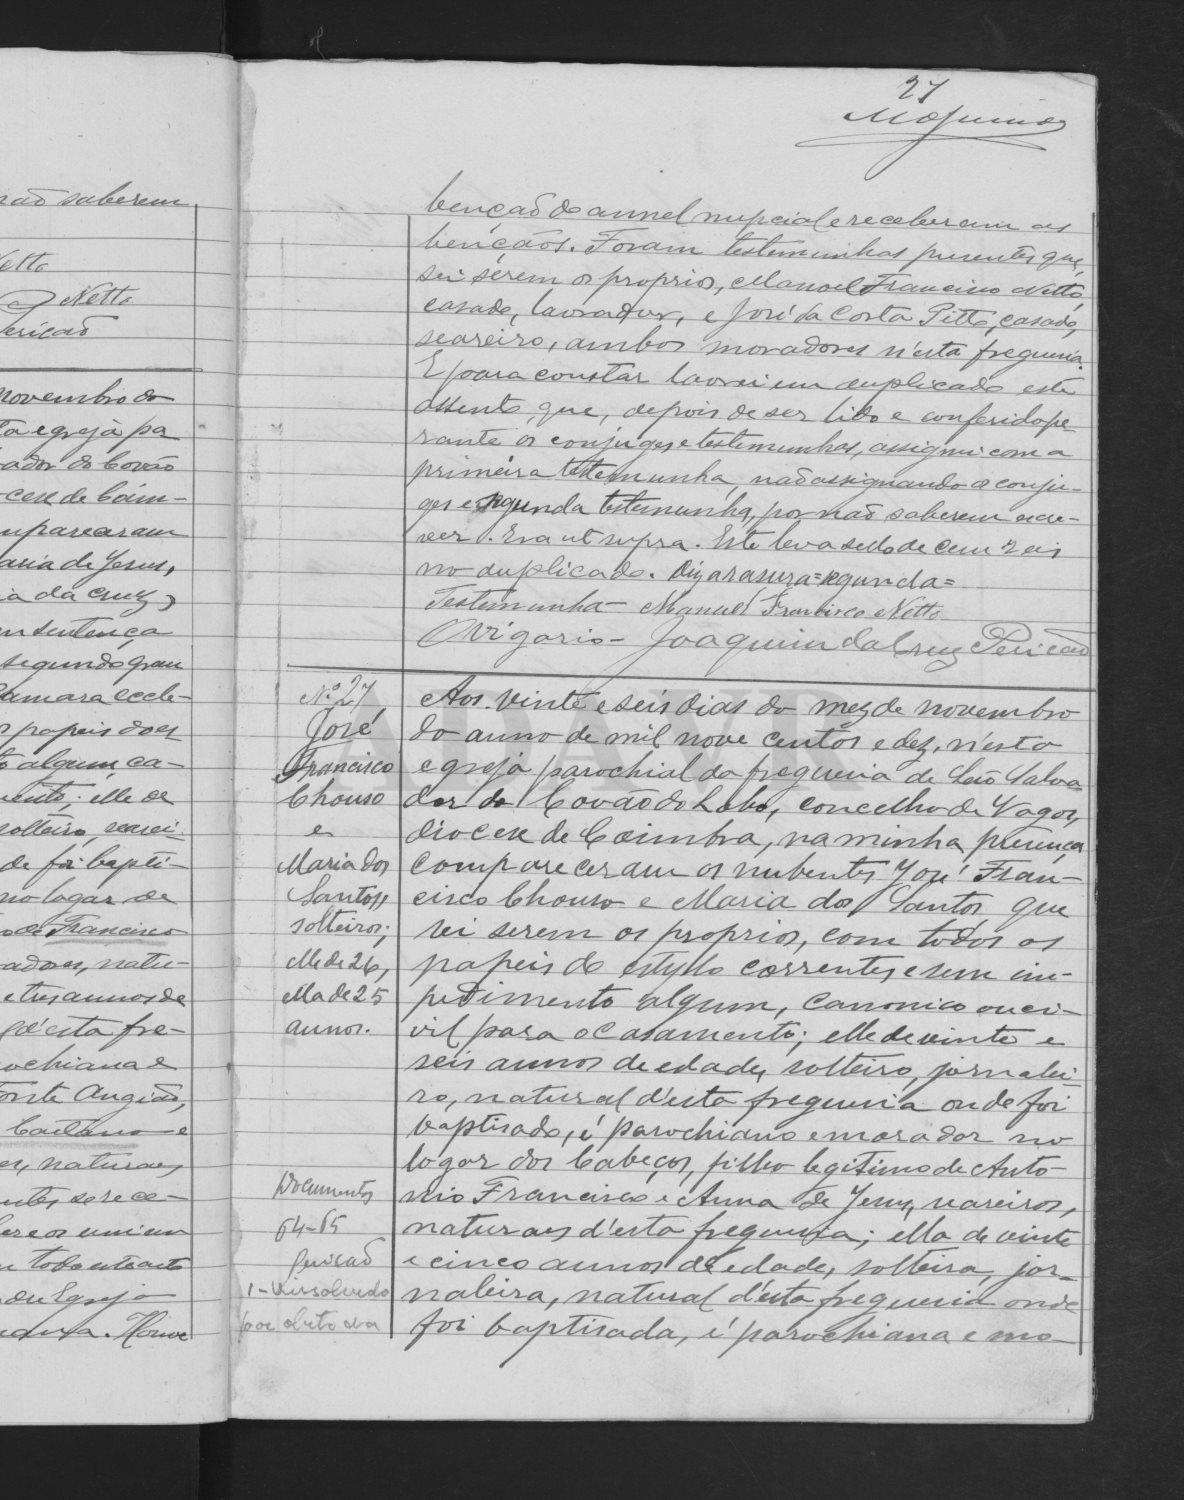 não saberem
Netto
Netto
Pericão
novembro do
ta egreja pa
vador do Covão
ocese de Coim-
mpareceram
aria de Jesus,
ia da Cruz,
m sentença
segundo grau
Camara eccle-
s papeis do es
to algum, ca-
mento; elle de
solteiro, searei
de foi bapti-
no logar de
o de Francisco
adores, natu-
e tres annos de
d'esta fre-
ochiana e
Fonte Angião,
Caetano e
es, naturaes
entes se rece-
bere os uni em
n todo este acto
da Egreja
27
benção do annel nupcial e receberam as
bençãos. Foram testemunhas presentes que,
sei serem os proprios, Manoel Francisco Netto,
casado, lavrador, e José da Costa Pitto, casado,
seareiro, ambos moradores n'esta freguesia.
E para constar lavrei em duplicado este
assento, que, depois de ser lido e conferido pe-
rante os conjuges e testemunhas, assignei com a
primeira testemunha, não assignando os conju-
ges e segunda testemunha, por não saberem escre-
ver. Era ut supra. Este leva sello de cem reis
no duplicado. Diz a rasura = segunda =
Testemunha - Manuel Francisco Netto
O Vigario - Joaquim da Cruz Pericão
Nº 27
José
Francisco
Chouso
e
Maria dos
Santos,
solteiros;
elle de 26,
ella de 25
annos.
Documentos
64-65
Pericão
1 - Dissolvido
por obito da
Aos vinte e seis dias do mez de novembro
do anno de mil nove centos e dez, n'esta
egreja parochial da freguesia de São Salva
dor do Covão do Lobo, concelho de Vagos,
diocese de Coimbra, na minha presença
compareceram os nubentes José Fran-
cisco Chouso e Maria dos Santos, que
sei serem os proprios, com todos os
papeis do estylo correntes, e sem im-
pedimento algum, canonico ou ci-
vil para o casamento; elle de vinte e
seis annos de edade, solteiro, jornalei-
ro, natural d'esta freguesia onde foi
baptisado, é parochiano e morador no
logar dos Cabeços, filho legitimo de Anto-
nio Francisco e Anna de Jesus, seareiros,
naturaes d'esta freguesia; ella de vinte
e cinco annos de edade, solteira, jor-
naleira, natural d'esta freguesia onde
foi baptisada, é parochiana e mo-